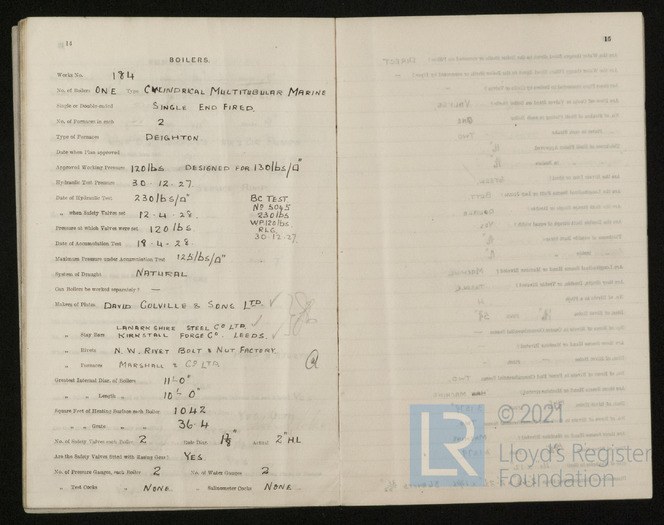 14
BOILERS.
Works No. 184
No. of Boilers ONE Type CYLINDRICAL MULTITUBULAR MARINE
Single or Double-ended SINGLE END FIRED.
No. of Furnaces in each 2
Type of Furnace DEIGHTON
Date when Plan approved
Approved Working Pressure 120 lbs DESIGNED FOR 130 lbs/□"
Hydraulic Test Pressure 30.12.27.
Date of Hydraulic Test 230 lbs/□"
„ when Safety Valves set 12.4.28.
Pressure at which Valves were set 120 lbs
Date of Accumulation Test 18.4.28.
Maximum Pressure under Accumulation Test 125 lbs/□"
System of Draught NATURAL
Can Boilers be worked separately? —
BC TEST
No 5045
230 lbs
WP 120 lbs
RLG.
30.12.27.
Makers of Plates DAVID COLVILLE & SONS LTD.
LANARKSHIRE STEEL CO LTD.
„ Stay Bars KIRKSTALL FORGE CO. LEEDS.
„ Rivets N.W. RIVET BOLT & NUT FACTORY
„ Furnaces MARSHALL & CO LTD
Greatest Internal Diam. of Boilers 11'-0"
„ „ Length „ 10'-0"
Square Feet of Heating Surface each Boiler 1042
„ „ Grate „ „ 36.4
No. of Safety Valves each Boiler 2 Their Diar. Actual 2" H.L
Are the Safety Valves fitted with Easing Gear? YES
No. of Pressure Gauges, each Boiler 2 No. of Water Gauges 2
„ Test Cocks „ NONE „ Salinometer Cocks NONE
15
© 2021
LR
Lloyd's Register
Foundation